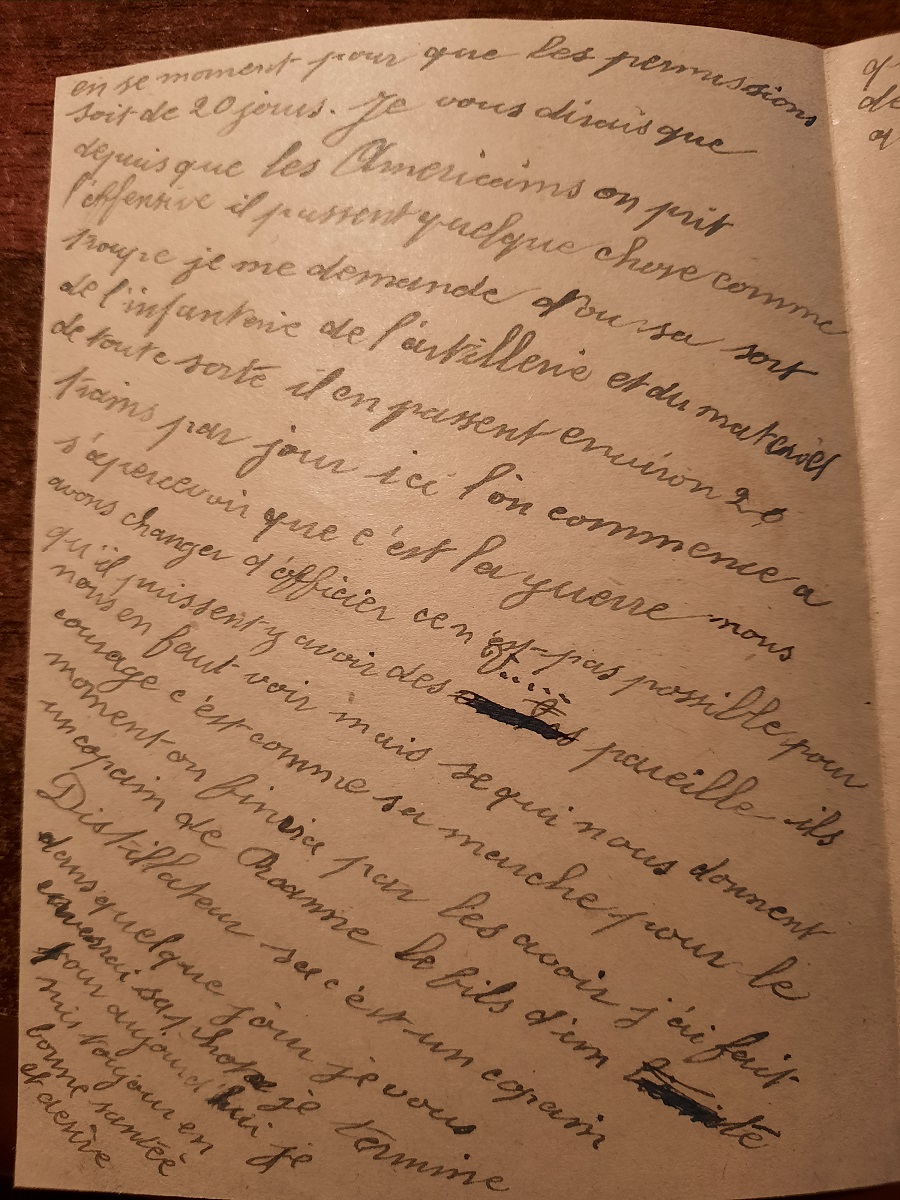 en se moment pour que les permissions
soit de 20 jours. Je vous dirais que
depuis que les Americains on prit
l'offensive il passent quelque chose comme
troupe je me demande d'ou sa sort
de l'infanterie de l'artillerie et du materiel
de toute sorte il en passent environ 20
trains par jour ici l'on commence a
s'apercevoir que c'est la guerre nous
avons changer d'officier ce n'est pas possible pour
qu'il puissent y avoir des pareille ils
nous en faut voir mais se qui nous donnent
courage c'est comme sa marche pour le
moment on finira par les avoir j'ai fait
un copain de Roanne le fils d'un
Distillateur sa c'est un copain
dans quelque jour je vous
enverrai sa photo je termine
pour aujourd'hui je
suis toujour en
bonne santée
et desire